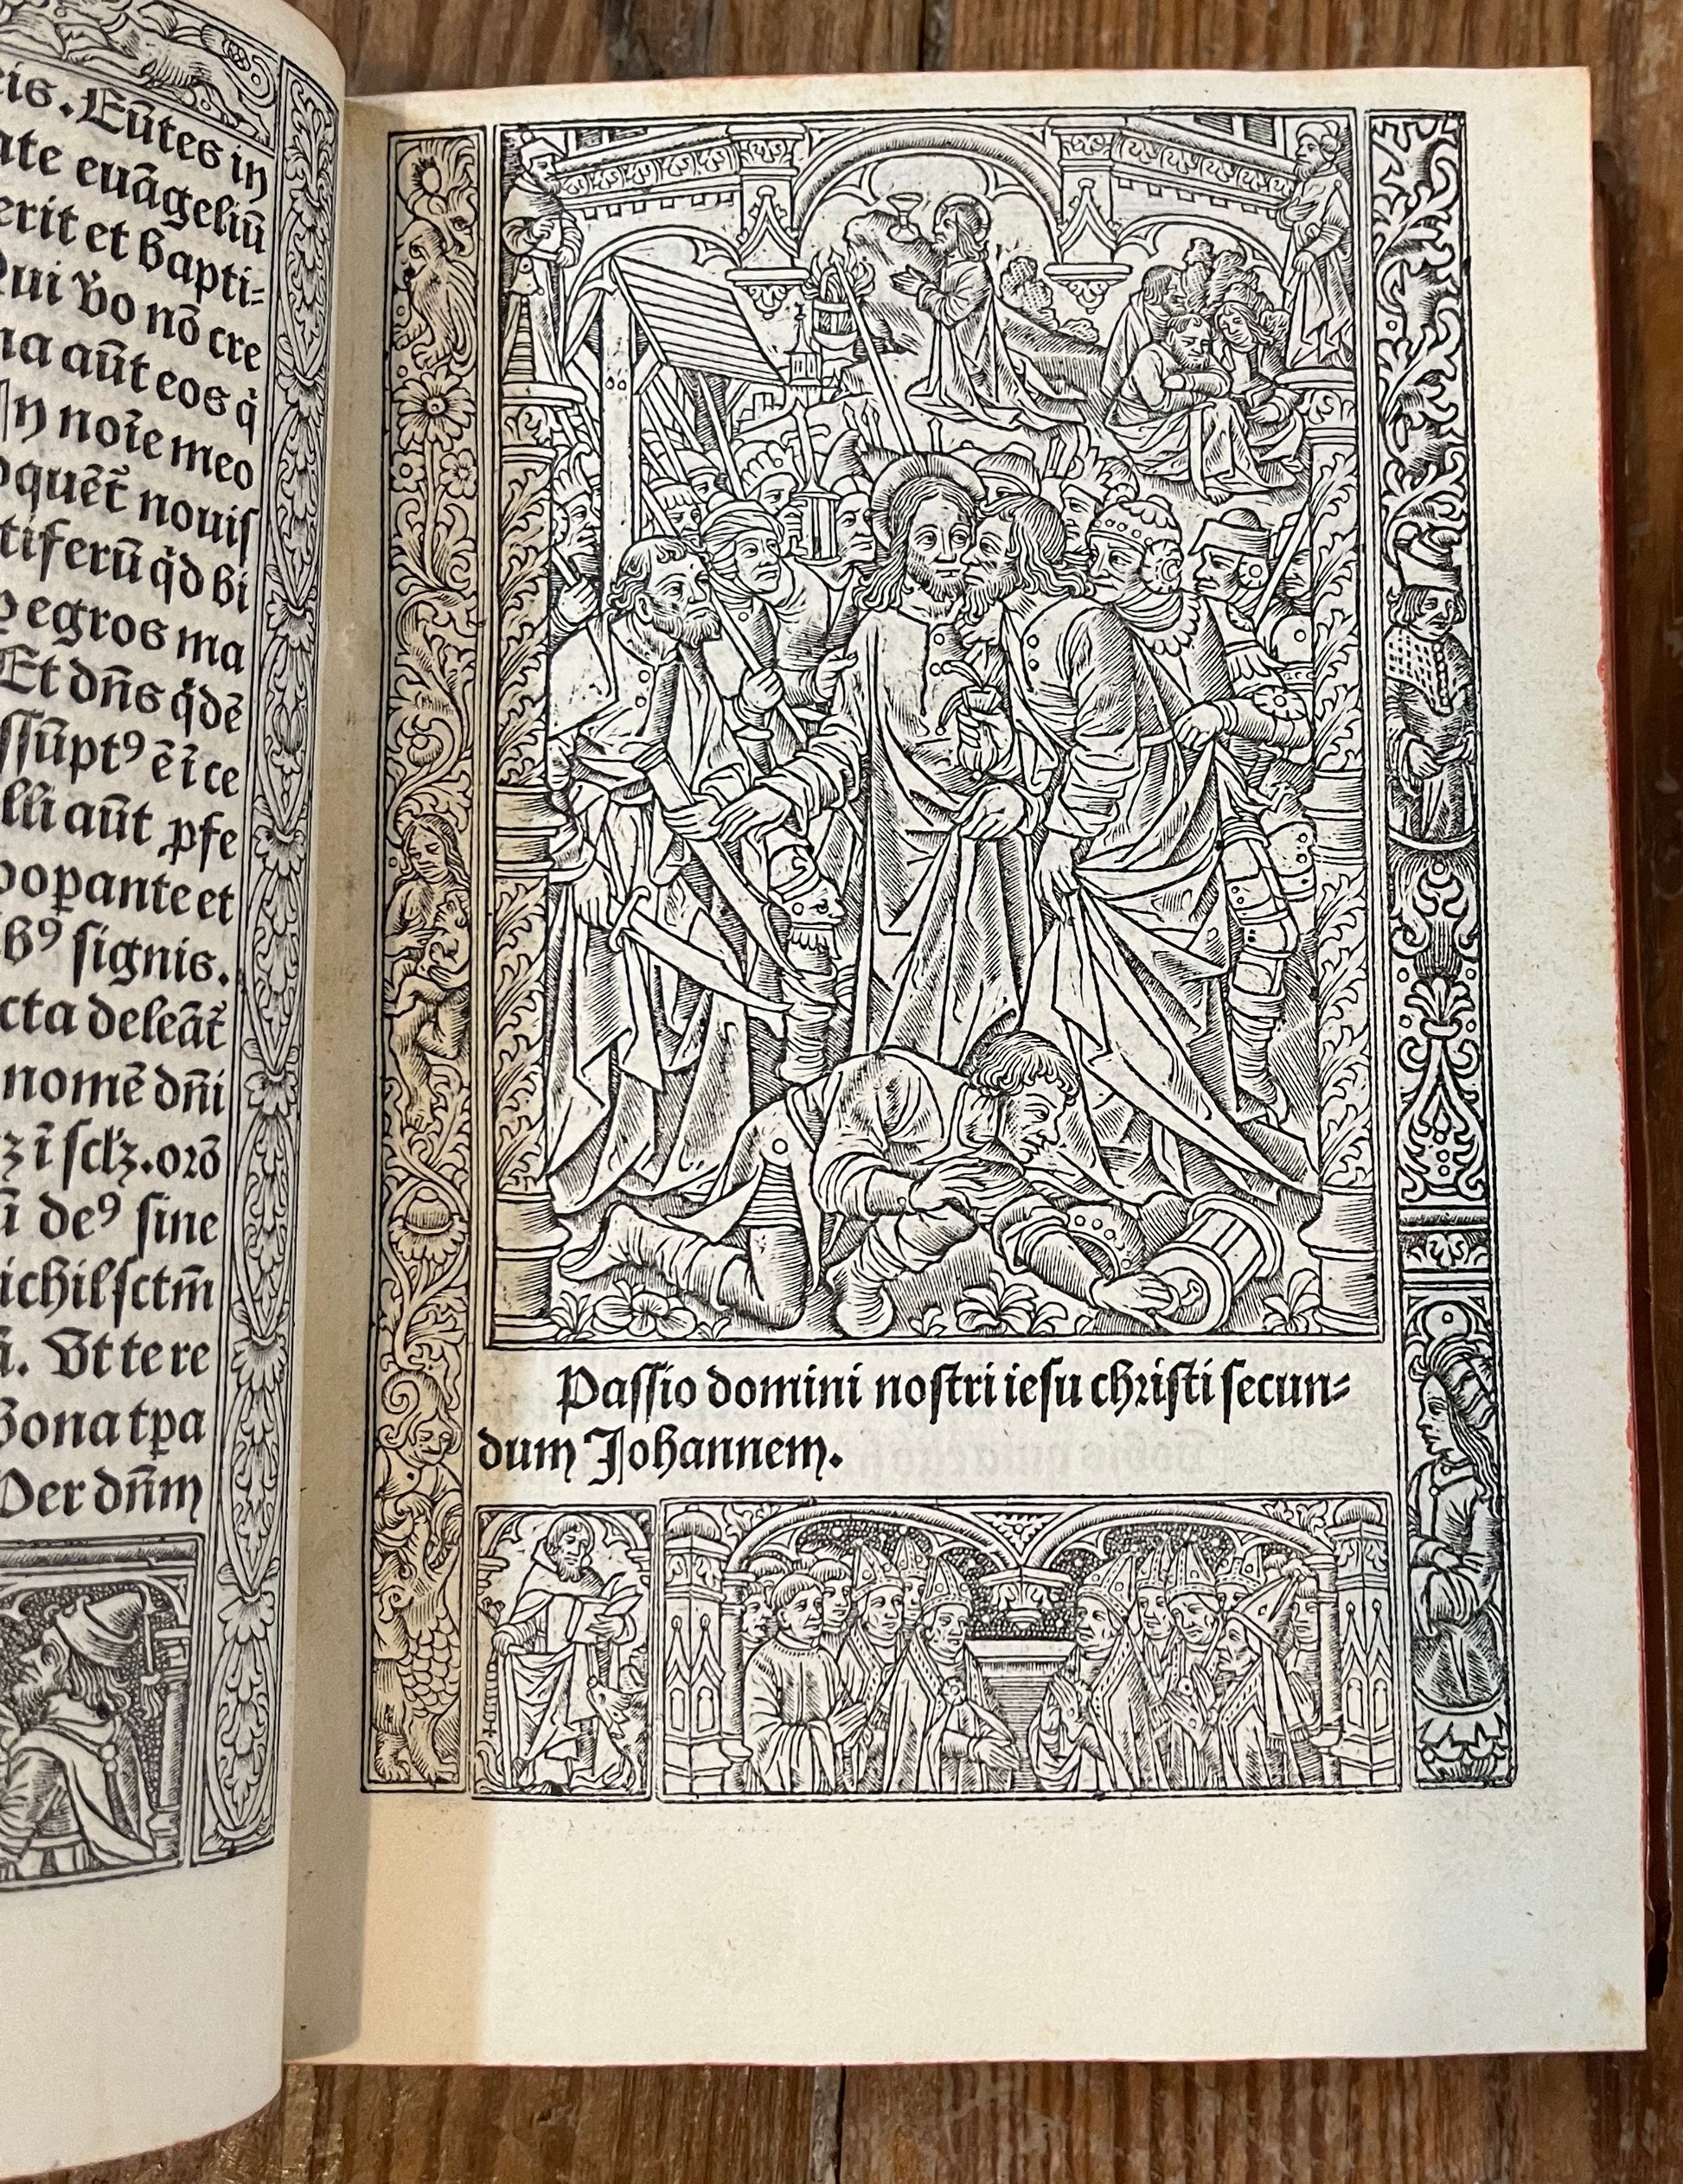 eis. Eūtes in
ate euāgeliū
erit et bapti=
Qui vo nō cre
na aūt eos q̇
In noīe meo
oquēt̄ nouiſ
tiferū q̇d bi
egros ma
Et dn̄s q̇dē
ſſūptꝰ ē ī ce
lli aūt ꝓfe
oopante et
bꝰ ſignis.
cta deleāt̄
nomē dn̄i
ī ſcl'ꝫ. orō
ū deꝰ ſine
ichil ſctm̄
Vt te re
bona tꝑa
Per dn̄m
Paſſio domini noſtri ieſu chriſti ſecun=
dum Johannem.